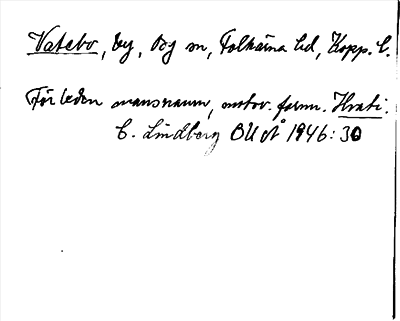 Vatebo, by, By sn, Folkärna hd, Kopp. l.
Förleden mansnamn, motsv. fornn. Hvati.
C. Lindberg BUÅ 1946: 30